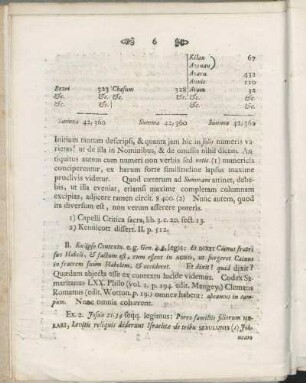 6
Kilan 67
Azenan
Azara 432
Annis 120
Bezai 323 Chasum 328 Arom 32
&c. &c. &c. &c. &c. &c.
&c. &c. &c.
Summa 42,360 Summa 42,360 Summa 42,360
Initium tantum descripsi, & quanta jam hic in solo numeri va-
rietas! ut de illa in Nominibus, & de consilu nihil dicam. An-
tiquitus autem cum numeri non verbis sed notis (1) numericis
conciperentur, ex harum forte similitudine lapsus maxime
proclivis videtur. Quod eandem ad Summam attinet, debe-
bis, ut illa eveniat, etiamsi maxime completam columnam
excipias, adjicere tamen circit. 8400. (2) Nunc autem, quot
in diversum est, non verum asserere poteris.
1) Capelli Critica sacra, lib. 3. c. 20. sect. 13.
2) Kennicott dissert. II. p. 512.
II. Eclipso Contextu. e. g. Gen. legis: Et dixit Cainus fratri
suo Habeli, & factum est, cum essent in agris, ut surgeret Cainus
in fratrem suum Habelem, & occideret. Et dixit? quid dixit?
Quædam abjecta esse ex contextu lucide videmus. Codex Sa-
maritanus LXX. Philo (vol. 1. p. 194. edit. Mangey.) Clemens
Romanus (edit. Wotton. p. 19.) omnes habent: abeamus in cam-
pum. Nunc omnia cohærent.
Ex. 2. Josuæ 21. 34 seqq. legimus: Porro familiis filiorum ME-
RARI, Levitis reliquis dederunt Israelitæ de tribu SEBULUNIS (1) Jok-
neam